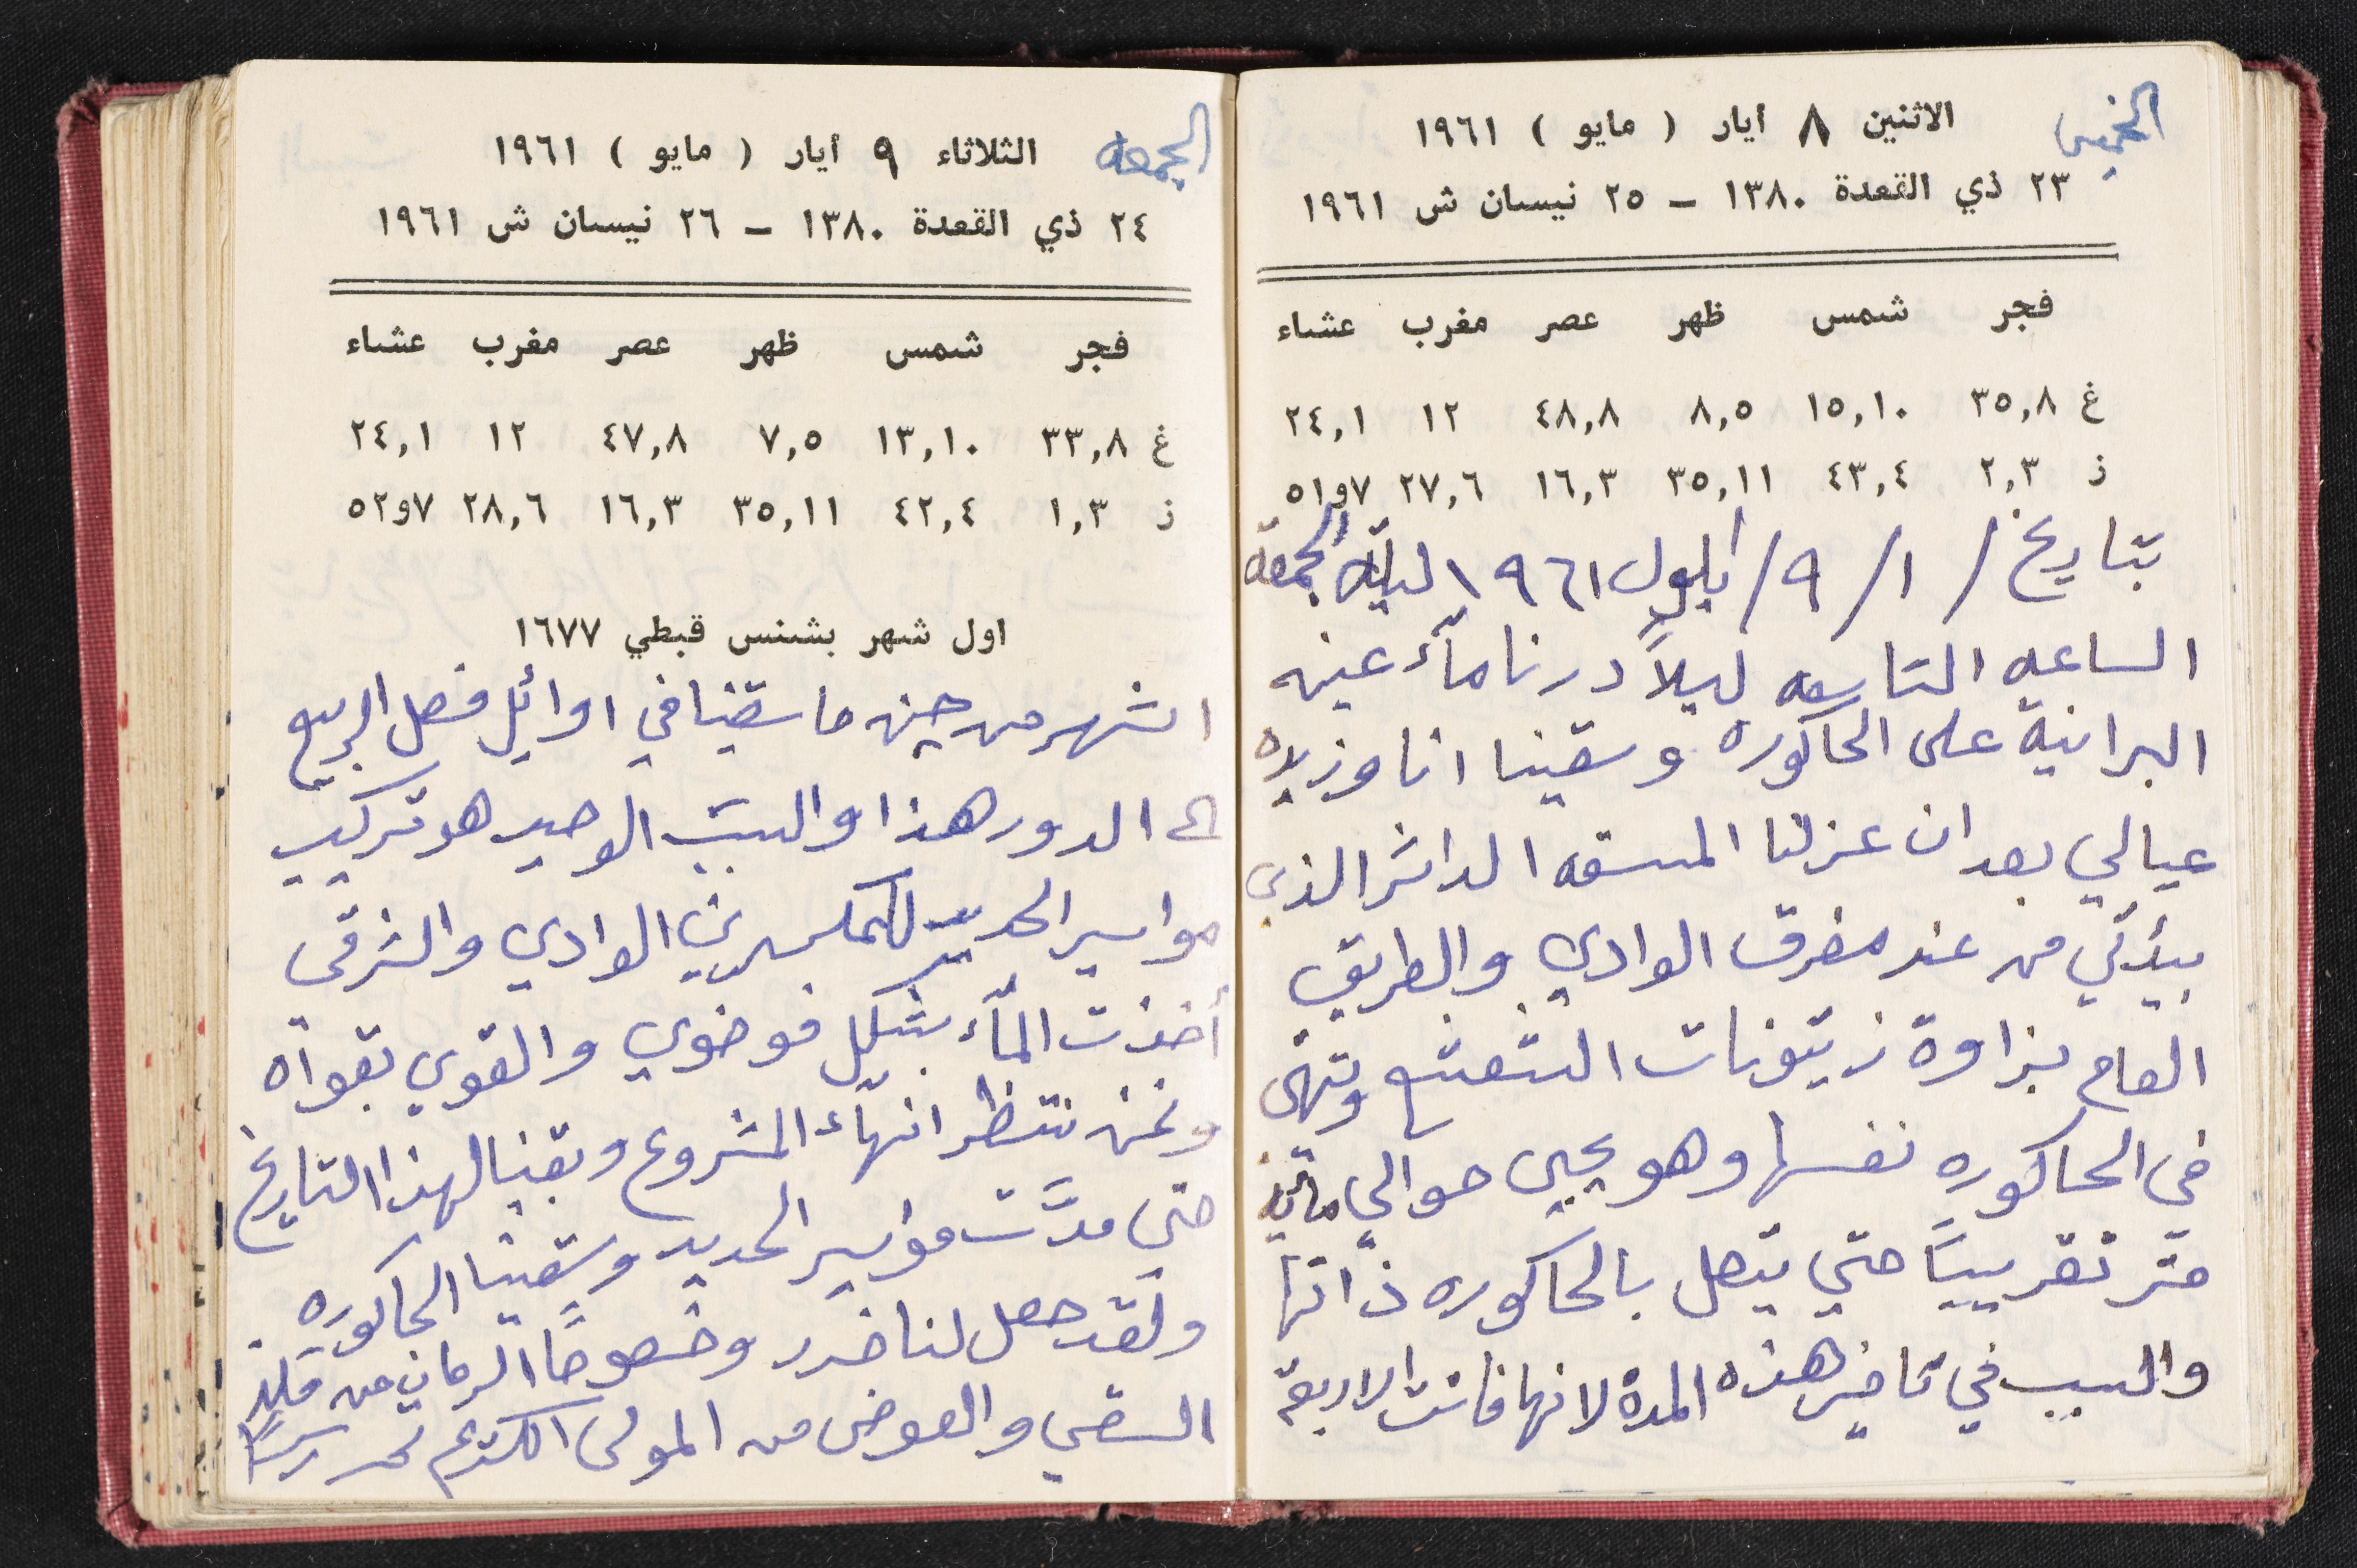 الخميس
الاثنين ٨ أيار ( مايو ) ١٩٦١
٢٣ ذي القعدة ١٣٨٠ – ٢٥ نيسان ش ١٩٦١
فجر شمس ظهر عصر مغرب عشاء
غ ٣٥,٨ ١٥,١٠ ٨,٥ ٤٨,٨ ١٢ ٢٤,١
ز ٢,٣ ٤٣,٤ ٣٥,١١ ١٦,٣ ٢٧,٦ ٧و٥١
بتاريخ /١/٩/ايلول ١٩٦١ ليلة الجمعة
الساعه التاسعه ليلاً درنا مآء عينه
البرانية على الحاكوره وسقينا انا وزيده
عيالي بعد ان عزلنا المسقه الداشر الذي
بيئتي من عند مفرق الوادي والطريق
العام بزاوة زيتونات وتنهى
في الحاكوره نفسها وهو يجيى حوالي ماية
متر تقريبياً حتي يتصل بالحاكوره ذاتها
والسبب في تاخير هذه المدة لانها فاتت الاربعة
الجمعه
الثلاثاء ٩ أيار ( مايو ) ١٩٦١
٢٤ ذي القعدة ١٣٨٠ – ٢٦ نيسان ش ١٩٦١
فجر شمس ظهر عصر مغرب عشاء
غ ٣٣,٨ ١٣,١٠ ٧,٥ ٤٧,٨ ١٢ ٢٤,١
ز ١,٣ ٤٢,٤ ٣٥,١١ ١٦,٣ ٢٨,٦ ٧و٥٢
اول شهر بشنس قبطي ١٦٧٧
اشهر من حين ما سقينا في اوائيل فصل الربيع
الى الدور هذا والسبب الوحيد هو تركيب
مواسير الحديد الوادي والشرقى
أخذت المآء بشكل فوضوي والقوي بقواه
ونحن ننتظر انهآء المشروع وبقينا لهذا التاريخ
حتي مدَّت مواسير الحديد وسقينا الحاكوره
ولقد حصل لنا ضرر وخصوصاً الرمان من قلة
السقي والعوض من المولى الكريم تحرر رسماً